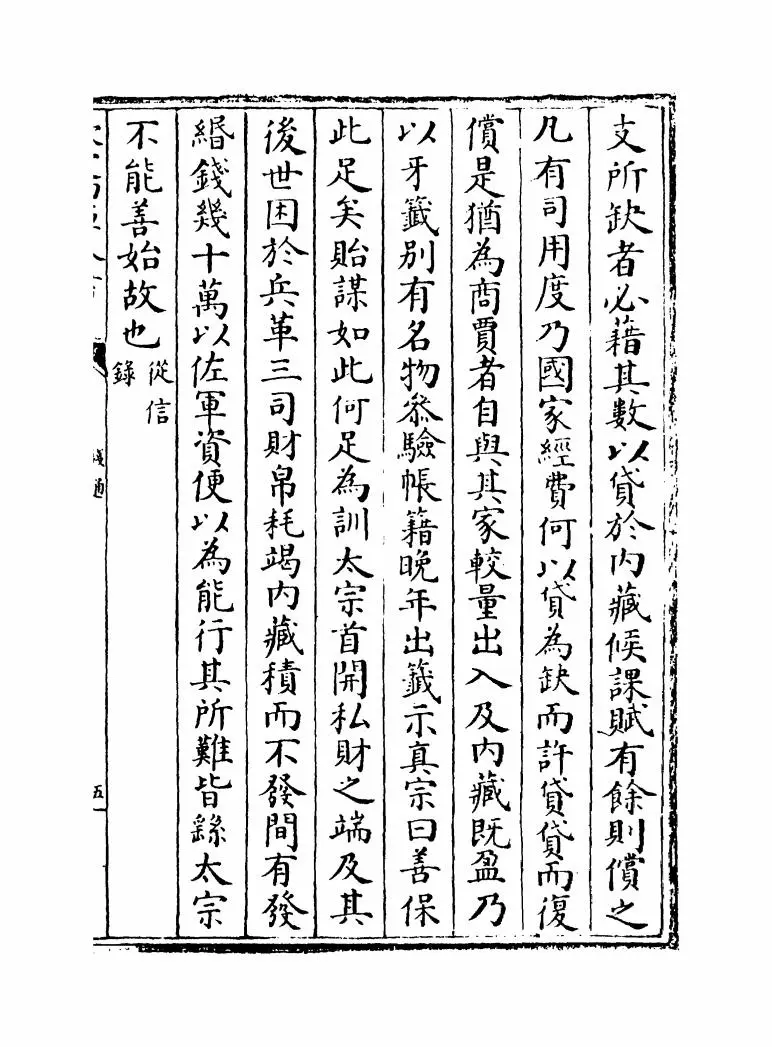 支所缺者必藉其數以貸於内藏候課賦有餘則償之
凡有司用度乃國家經費何以貸為缺而許貸貸而復
償是猶為商賈者自與其家較量出入及内藏既盈乃
以牙籤别有名物叅驗帳籍晚年出籤示真宗曰善保
此足矣貽謀如此何足為訓太宗首開私財之端及其
後世困於兵革三司財帛耗竭内藏積而不發間有發
緡錢幾十萬以佐軍資便以為能行其所難皆繇太宗
不能善始故也
從信
錄
通
五